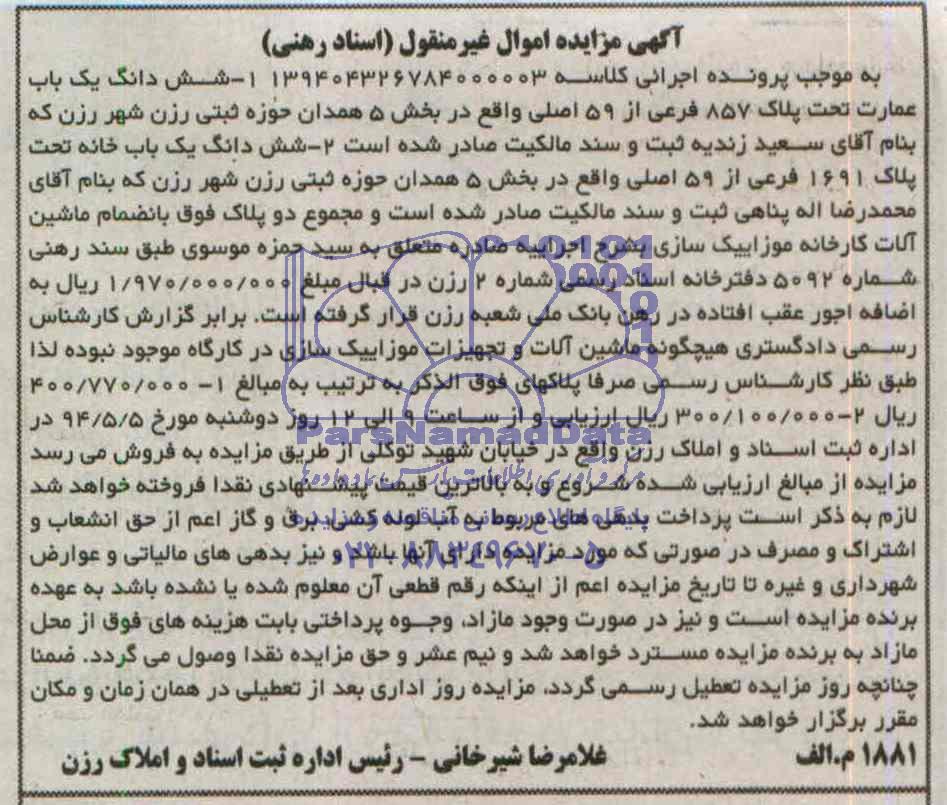 آگهی مزایده اموال غیرمنقول (اسناد رهنی)
به موجب پرونده اجرائی کلاسه ۱۳۹۴۰۴۳۲۶۷۸۴۰۰۰۰۰۳ ۱-شش دانگ یک باب
عمارت تحت پلاک ۸۵۷ فرعی از ۵۹ اصلی واقع در بخش ۵ همدان حوزه ثبتی رزن شهر رزن که
بنام آقای سعید زندیه ثبت و سند مالکیت صادر شده است ۲-شش دانگ یک باب خانه تحت
پلاک ۱۶۹۱ فرعی از ۵۹ اصلی واقع در بخش ۵ همدان حوزه ثبتی رزن شهر رزن که بنام آقای
محمدرضا اله پناهی ثبت و سند مالکیت صادر شده است و مجموع دو پلاک فوق بانضمام ماشین
آلات کارخانه موزاییک سازی بشرح اجراییه صادره متعلق به سید حمزه موسوی طبق سند رهنی
شماره ۵۰۹۲ دفترخانه اسناد رسمی شماره ۲ رزن در قبال مبلغ ۱/۹۷۰/۰۰۰/۰۰۰ ریال به
اضافه اجور عقب افتاده در رهن بانک ملی شعبه رزن قرار گرفته است. برابر گزارش کارشناس
رسمی دادگستری هیچگونه ماشین آلات و تجهیزات موزاییک سازی در کارگاه موجود نبوده لذا
طبق نظر کارشناس رسمی صرفا پلاکهای فوق الذکر به ترتیب به مبالغ ۱- ۴۰۰/۷۷۰/۰۰۰
ریال ۲-۳۰۰/۱۰۰/۰۰۰ ریال ارزیابی و از ساعت ۹ الی ۱۲ روز دوشنبه مورخ ۹۴/۵/۵ در
اداره ثبت اسناد و املاک رزن واقع در خیابان شهید توکلی از طریق مزایده به فروش می رسد
مزایده از مبالغ ارزیابی شده شروع و به بالاترین قیمت پیشنهادی نقدا فروخته خواهد شد
لازم به ذکر است پرداخت بدهی های مربوط به آب لوله کشی، برق و گاز اعم از حق انشعاب و
اشتراک و مصرف در صورتی که مورد مزایده دارای آنها باشد و نیز بدهی های مالیاتی و عوارض
شهرداری و غیره تا تاریخ مزایده اعم از اینکه رقم قطعی آن معلوم شده یا نشده باشد به عهده
برنده مزایده است و نیز در صورت وجود مازاد، وجوه پرداختی بابت هزینه های فوق از محل
مازاد به برنده مزایده مسترد خواهد شد و نیم عشر و حق مزایده نقدا وصول می گردد. ضمنا
چنانچه روز مزایده تعطیل رسمی گردد، مزایده روز اداری بعد از تعطیلی در همان زمان و مکان
مقرر برگزار خواهد شد.
۱۸۸۱ م.الف غلامرضا شیرخانی - رئیس اداره ثبت اسناد و املاک رزن
ParsNamadData